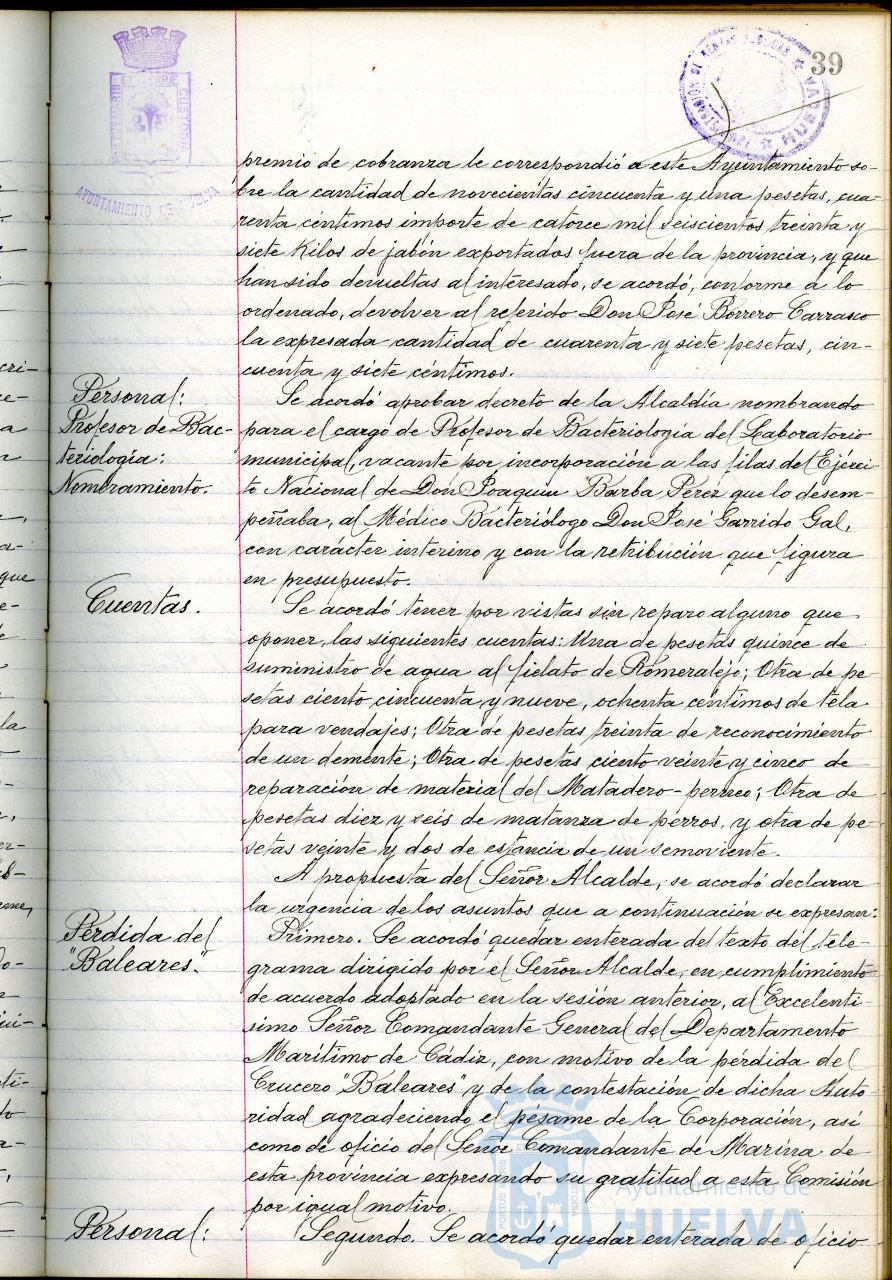 39
AYUNTAMIENTO DE HUELVA
premio de cobranza le correspondió a este Ayuntamiento so-
bre la cantidad de novecientas cincuenta y una pesetas, cua-
renta céntimos importe de catorce mil seiscientos treinta y
siete Kilos de jabón exportados fuera de la provincia, y que
han sido devueltas al interesado, se acordó, conforme a lo
ordenado, devolver al referido Don José Borrero Carrasco
la expresada cantidad de cuarenta y siete pesetas, cin-
cuenta y siete céntimos.
Personal:
Profesor de Bac-
teriología:
Nombramiento.
Se acordó aprobar decreto de la Alcaldía nombrando
para el cargo de Profesor de Bacteriología del Laboratorio
municipal, vacante por incorporación a las filas del Ejérci-
to Nacional de Don Joaquin Barba Pérez que lo desem-
peñaba, al Médico Bacteriólogo Don José Garrido Gal,
con carácter interino y con la retribución que figura
en presupuesto.
Cuentas.
Se acordó tener por vistas sin reparo alguno que
oponer, las siguientes cuentas: Una de pesetas quince de
suministro de agua al fielato de Romeralejo; Otra de pe-
setas ciento cincuenta y nueve, ochenta céntimos de tela
para vendajes; Otra de pesetas treinta de reconocimiento
de un demente; Otra de pesetas ciento veinte y cinco de
reparación de material del Matadero-perneo; Otra de
pesetas diez y seis de matanza de perros, y otra de pe-
setas veinte y dos de estancia de un semoviente.
A propuesta del Señor Alcalde, se acordó declarar
la urgencia de los asuntos que a continuación se expresan:
Pérdida del
"Baleares".
Primero. Se acordó quedar enterada del texto del tele-
grama dirigido por el Señor Alcalde, en cumplimiento
de acuerdo adoptado en la sesión anterior, al Excelentí-
simo Señor Comandante General del Departamento
Marítimo de Cádiz, con motivo de la pérdida del
Crucero "Baleares" y de la contestación de dicha Auto-
ridad agradeciendo el pésame de la Corporación, así
como de oficio del Señor Comandante de Marina de
esta provincia expresando su gratitud a esta Comisión
por igual motivo.
Personal:
Segundo. Se acordó quedar enterada de oficio
Ayuntamiento de
HUELVA